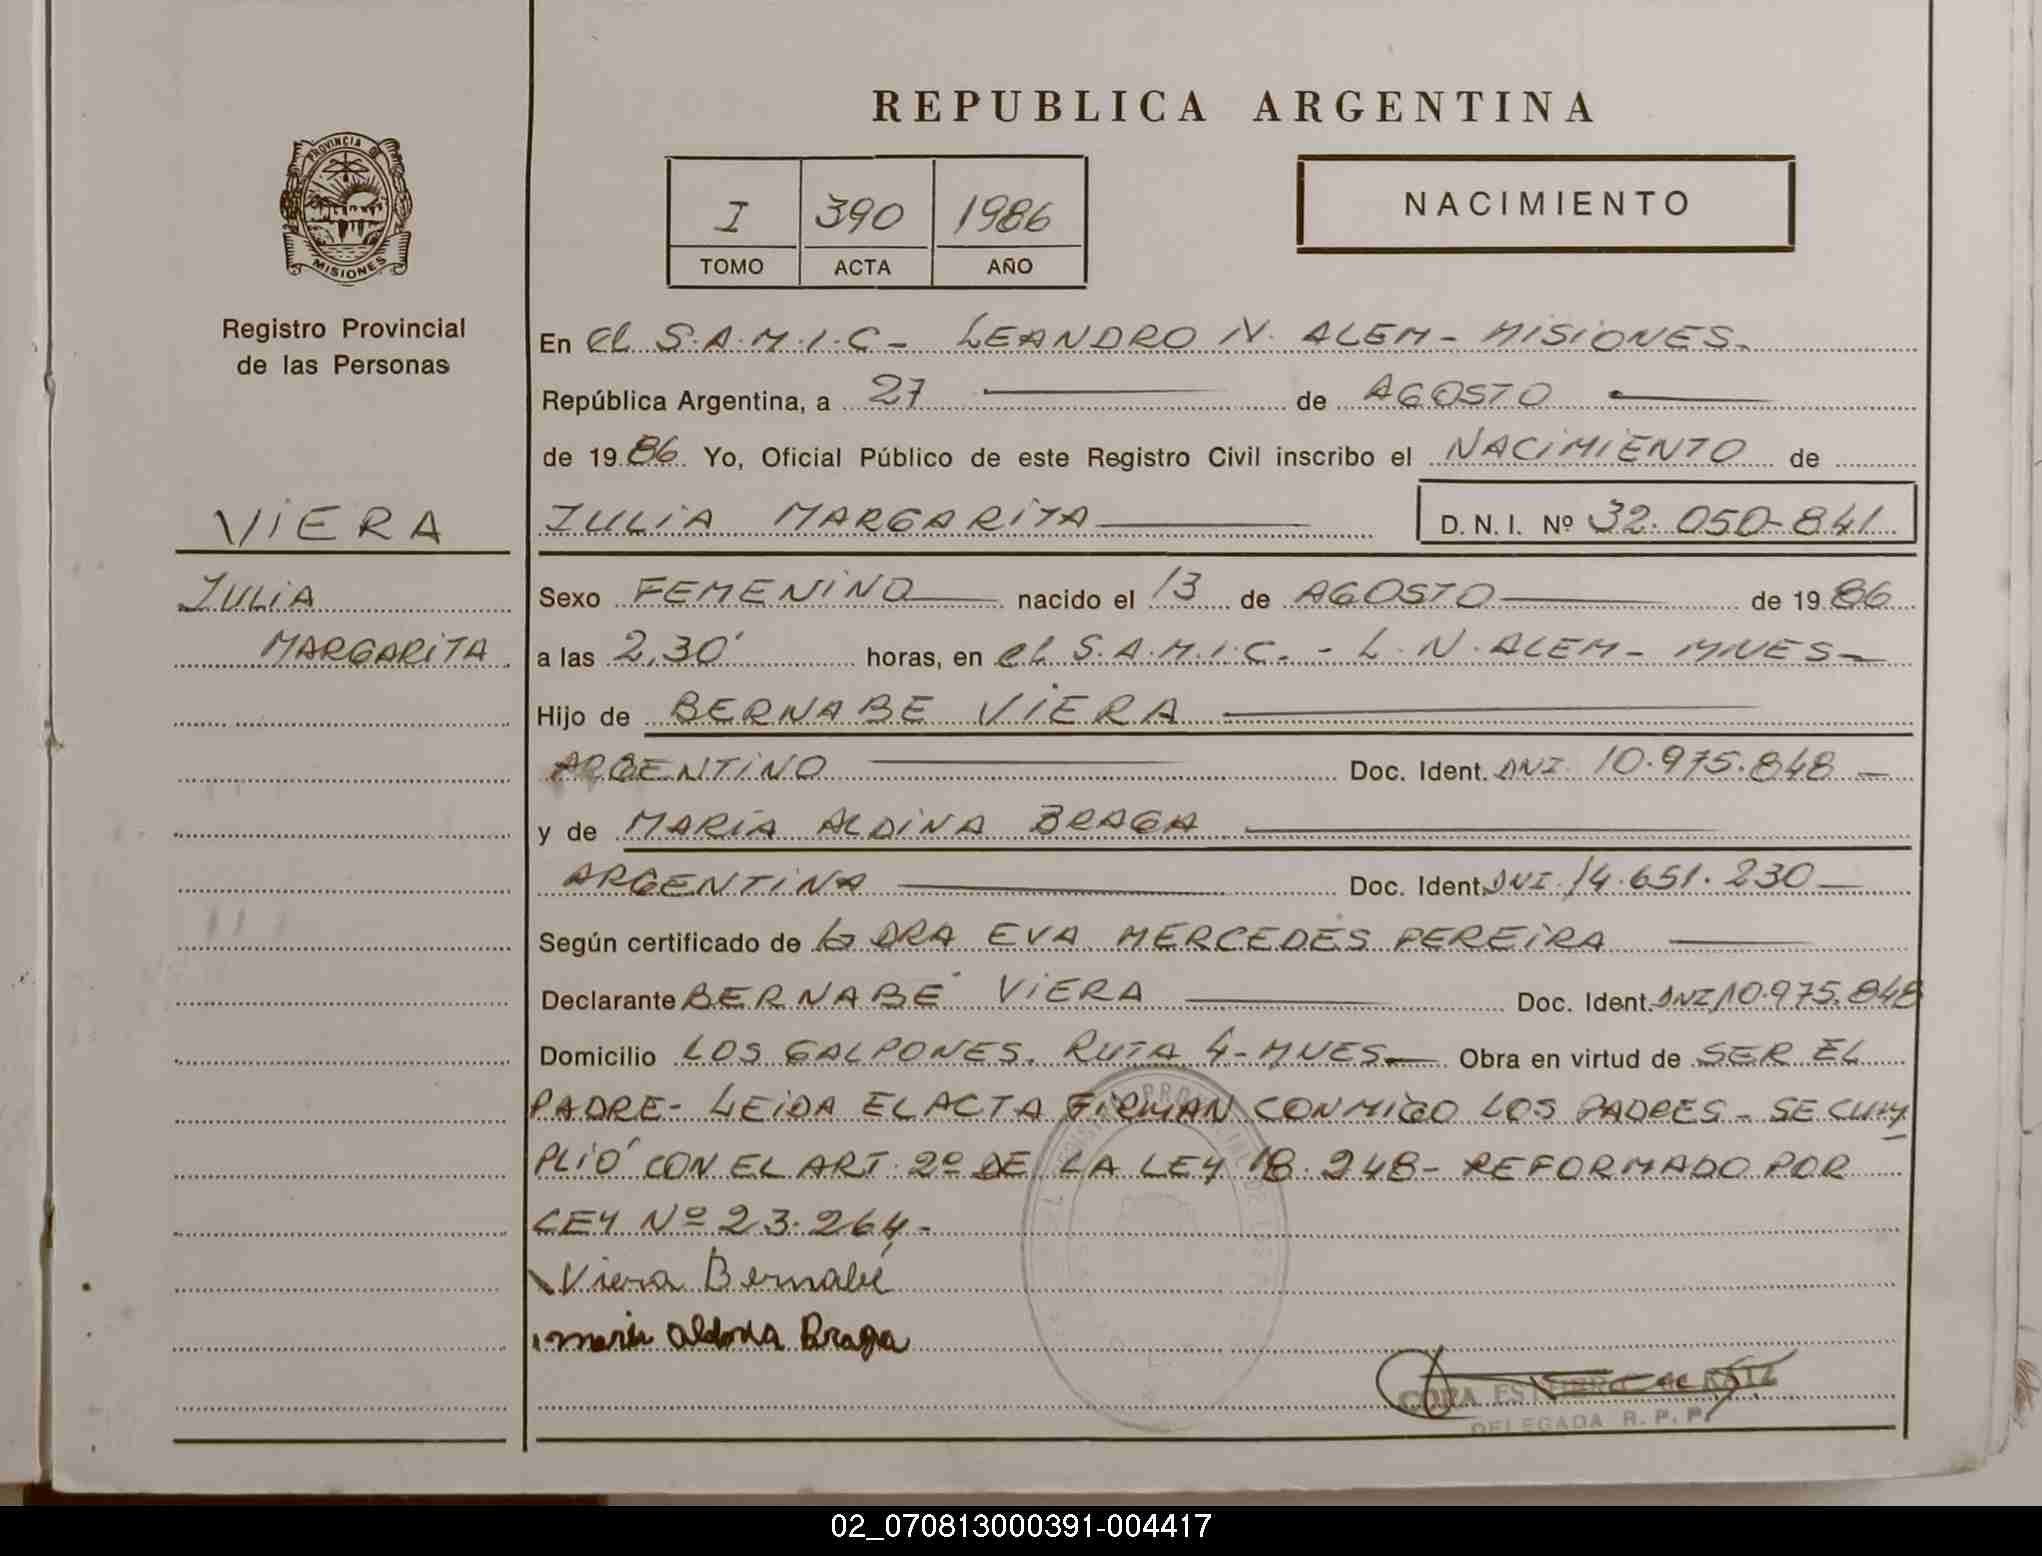 REPUBLICA ARGENTINA
PROVINCIA DE
MISIONES
Registro Provincial
de las Personas
I 390 1986
TOMO ACTA AÑO
NACIMIENTO
En el S.A.M.I.C- LEANDRO N. ALEM- MISIONES-
República Argentina, a 27 de AGOSTO
de 1986 Yo, Oficial Público de este Registro Civil inscribo el NACIMIENTO de
VIERA
JULIA MARGARITA D. N. I. Nº 32.050-841
JULIA
MARGARITA
Sexo FEMENINO nacido el 13 de AGOSTO de 1986
a las 2,30' horas, en el S.A.M.I.C. - L.N.ALEM- MNES-
Hijo de BERNABE VIERA
ARGENTINO Doc. Ident. DNI 10.975.848-
y de MARIA ALDINA BRAGA
ARGENTINA Doc. Ident. DNI.14.651.230-
Según certificado de la DRA EVA MERCEDES PEREIRA
Declarante BERNABÉ VIERA Doc. Ident. DNI 10.975.848
Domicilio LOS GALPONES. RUTA 4-MNES- Obra en virtud de SER EL
PADRE- LEIDA EL ACTA FIRMAN CONMIGO LOS PADRES- SE CUM
PLIÓ CON EL ART. 2º DE LA LEY 18.248- REFORMADO POR
LEY Nº 23.264-
Viera Bernabé
maria aldina Braga
DELEGADA R. P. P.
02_070813000391-004417